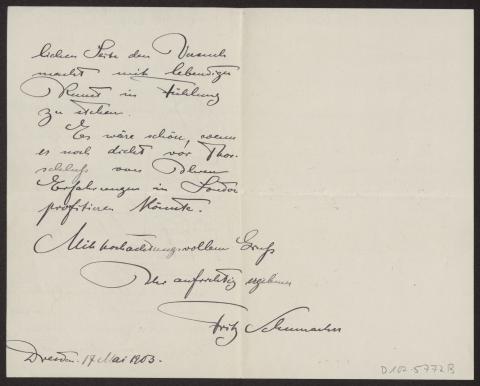 lichen Seite den Versuch
macht mit lebendiger
Kunst in Fühlung
zu stehen.
Es wäre schön, wenn
es noch dicht vor Thor-
schluss von Ihren
Erfahrungen in London
profitieren könnte.
Mit hochachtungsvollem Gruss
Ihr aufrichtig ergebener
Fritz Schumacher
Dresden. 17 Mai 1903.
D.102-5772B